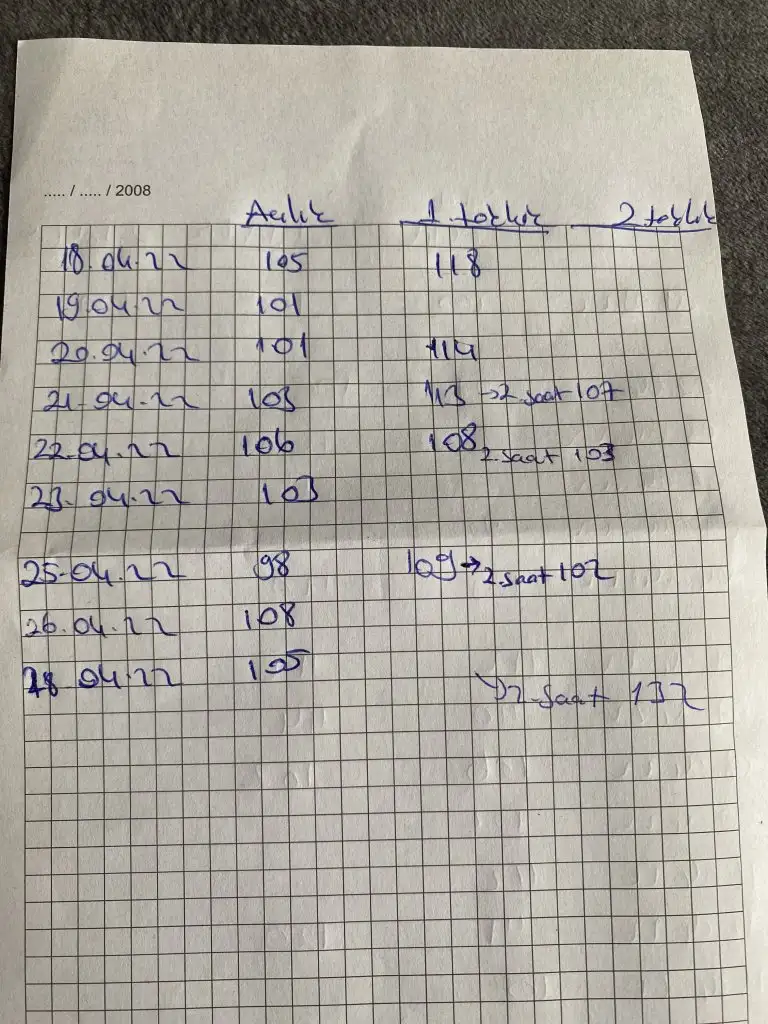 ..... / ..... / 2008
Açlık 1. tokluk 2. tokluk
18.04.22 105 118
19.04.22 101
20.04.22 101 114
21.04.22 103 113 → 2. saat 107
22.04.22 106 108 2. saat 103
23.04.22 103
25.04.22 98 109 → 2. saat 102
26.04.22 108
28 04.22 105 → 2. saat 132